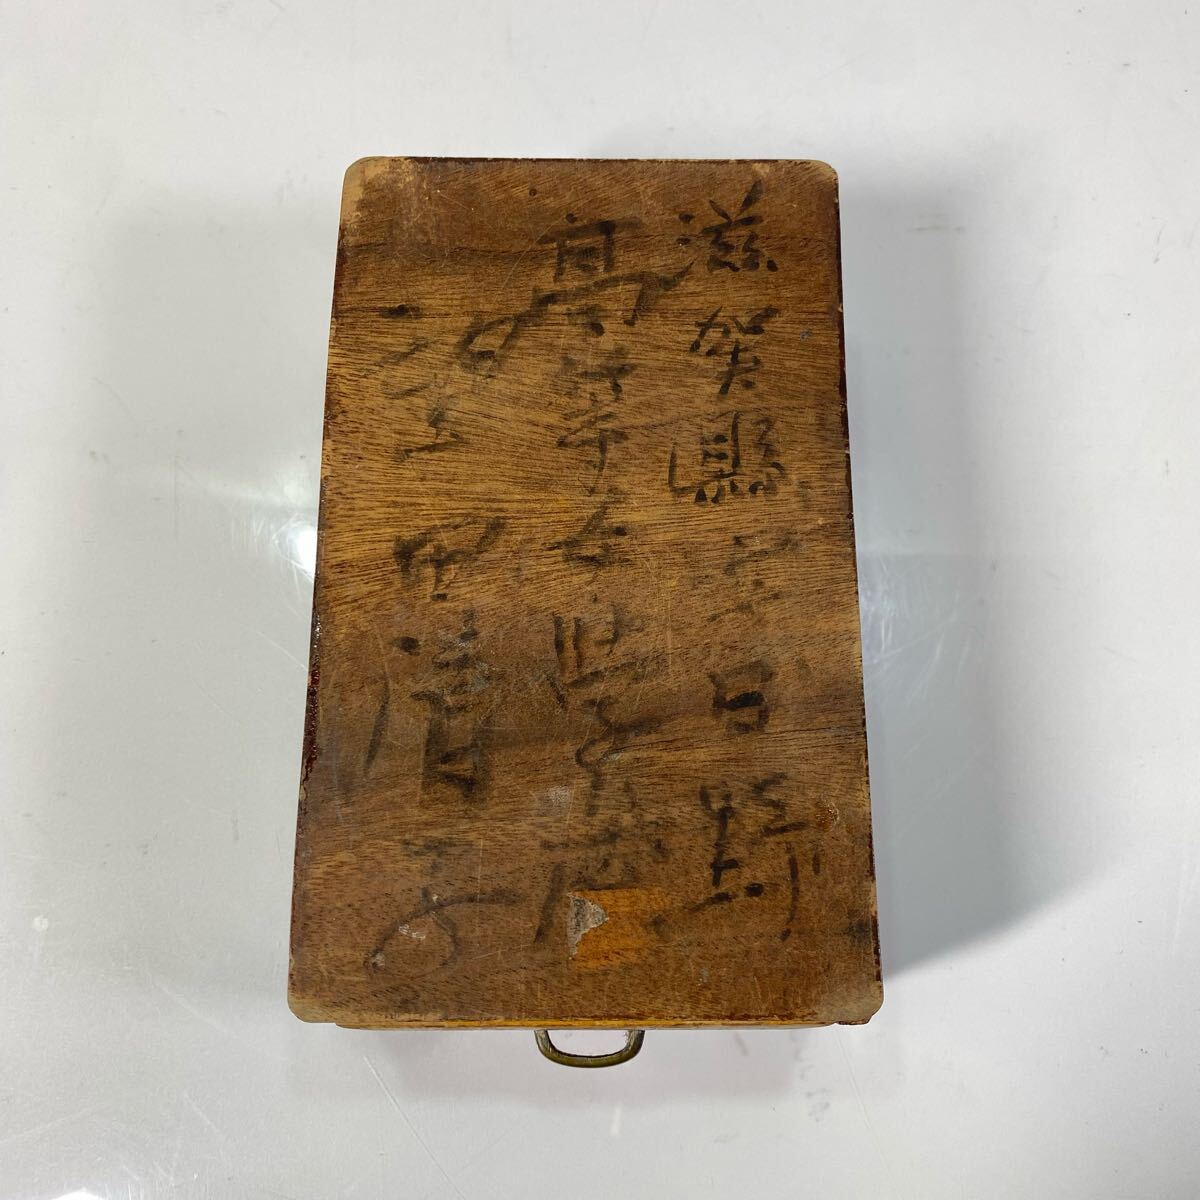 滋賀縣立日野
高等女學校
澤田清子